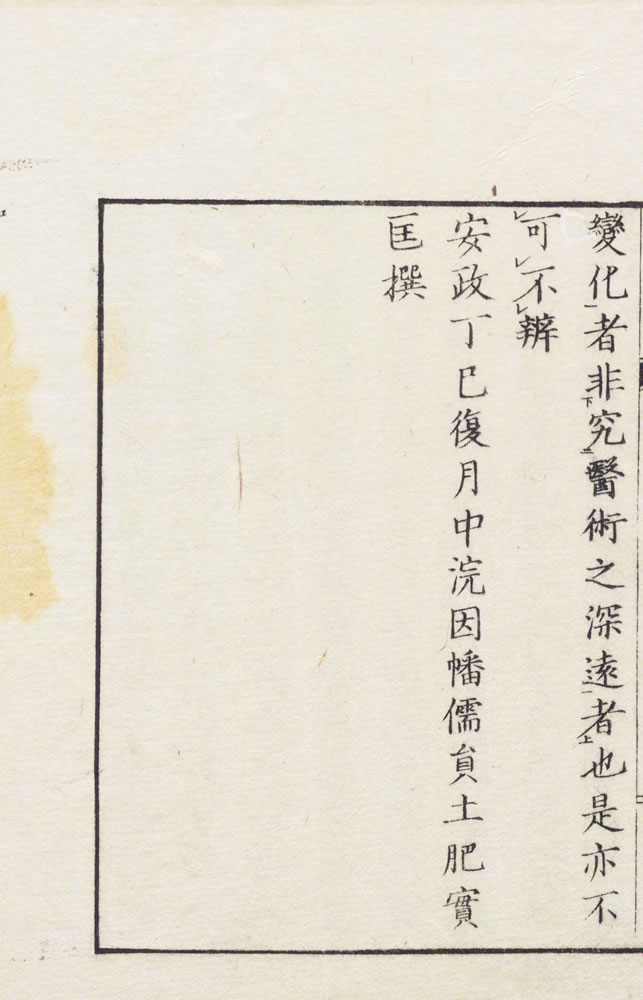 變化者非究醫術之深遠者也是亦不
可不辨
安政丁巳復月中浣因幡儒員土肥實
匡撰